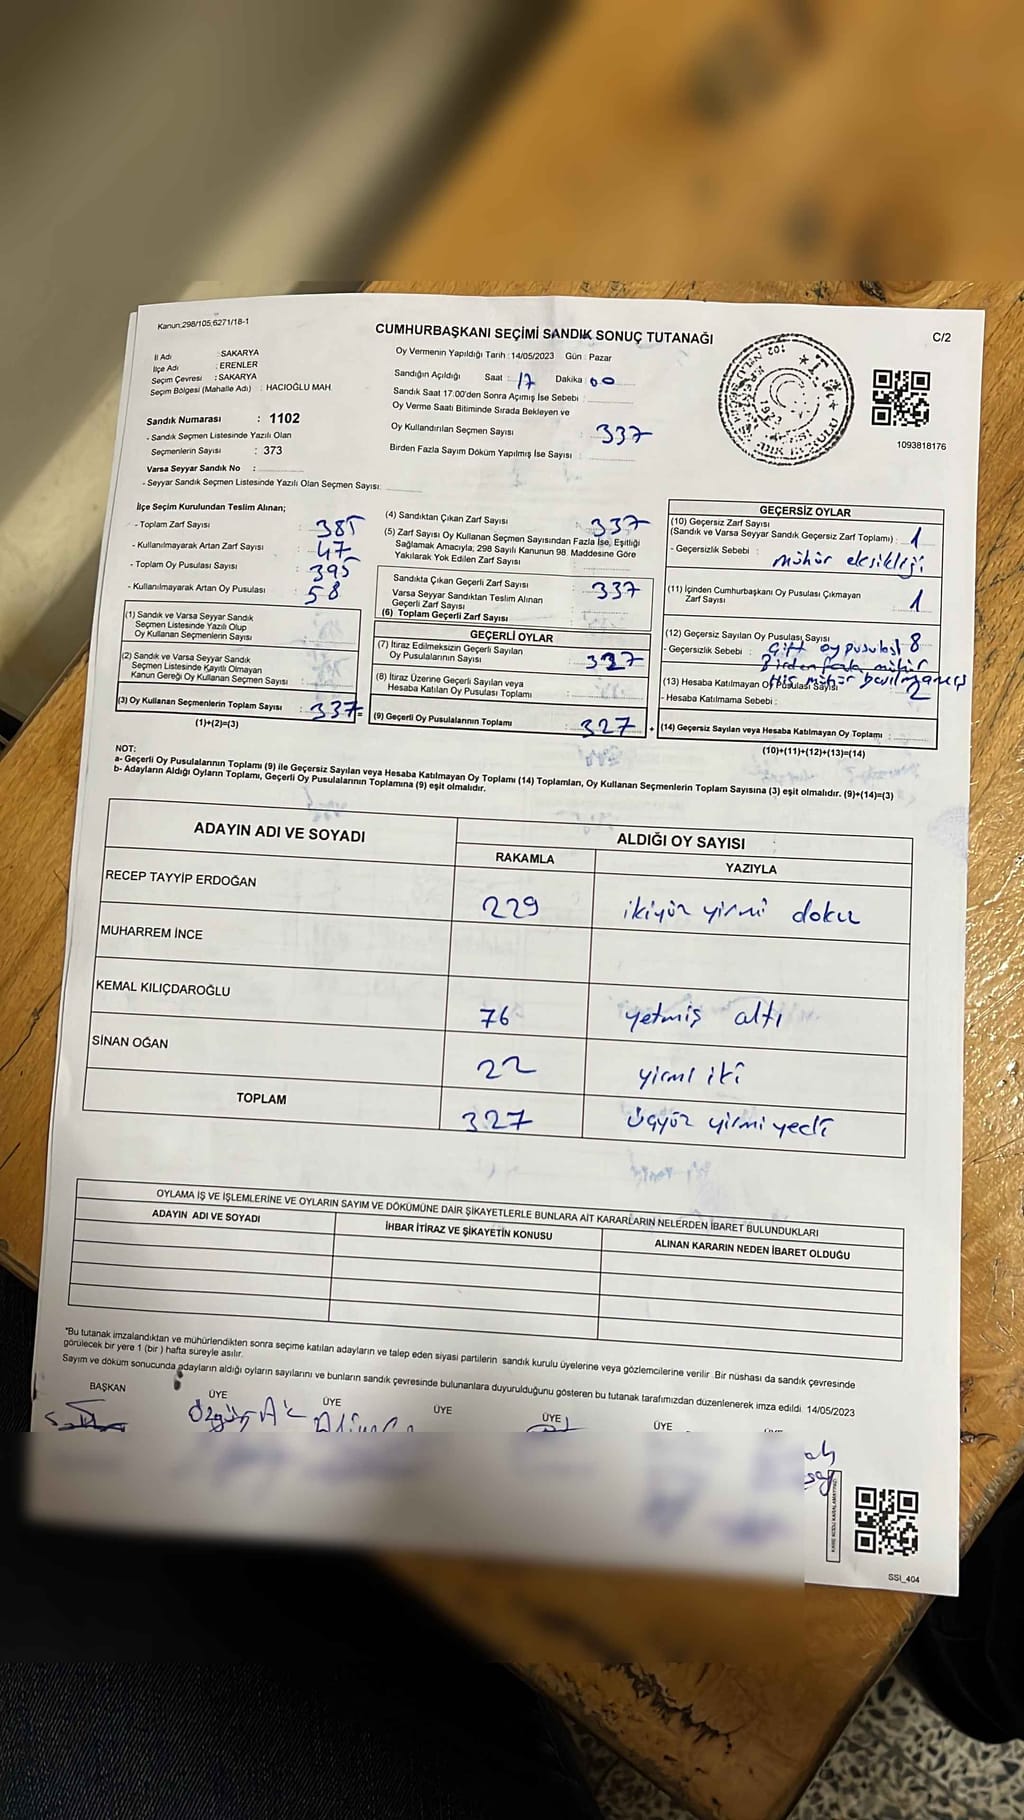 Kanun:298/105,6271/18-1
CUMHURBAŞKANI SEÇİMİ SANDIK SONUÇ TUTANAĞI
C/2
İl Adı : SAKARYA
İlçe Adı : ERENLER
Seçim Çevresi : SAKARYA
Seçim Bölgesi (Mahalle Adı) : HACIOĞLU MAH.
Sandık Numarası : 1102
- Sandık Seçmen Listesinde Yazılı Olan
Seçmenlerin Sayısı : 373
Varsa Seyyar Sandık No :
- Seyyar Sandık Seçmen Listesinde Yazılı Olan Seçmen Sayısı:
Oy Vermenin Yapıldığı Tarih : 14/05/2023 Gün : Pazar
Sandığın Açıldığı Saat : 17 Dakika : 00
Sandık Saat 17.00'den Sonra Açımış İse Sebebi :
Oy Verme Saati Bitiminde Sırada Bekleyen ve
Oy Kullandırılan Seçmen Sayısı : 337
Birden Fazla Sayım Döküm Yapılmış İse Sayısı :
1093818176
İlçe Seçim Kurulundan Teslim Alınan;
- Toplam Zarf Sayısı : 385
- Kullanılmayarak Artan Zarf Sayısı : 47
- Toplam Oy Pusulası Sayısı : 395
- Kullanılmayarak Artan Oy Pusulası : 58
(1) Sandık ve Varsa Seyyar Sandık
Seçmen Listesinde Yazılı Olup
Oy Kullanan Seçmenlerin Sayısı :
(2) Sandık ve Varsa Seyyar Sandık
Seçmen Listesinde Kayıtlı Olmayan
Kanun Gereği Oy Kullanan Seçmen Sayısı :
(3) Oy Kullanan Seçmenlerin Toplam Sayısı : 337 =
(1)+(2)=(3)
(4) Sandıktan Çıkan Zarf Sayısı : 337
(5) Zarf Sayısı Oy Kullanan Seçmen Sayısından Fazla İse, Eşitliği
Sağlamak Amacıyla, 298 Sayılı Kanunun 98. Maddesine Göre
Yakılarak Yok Edilen Zarf Sayısı :
Sandıkta Çıkan Geçerli Zarf Sayısı : 337
Varsa Seyyar Sandıktan Teslim Alınan
Geçerli Zarf Sayısı :
(6) Toplam Geçerli Zarf Sayısı :
GEÇERLİ OYLAR
(7) İtiraz Edilmeksizin Geçerli Sayılan
Oy Pusulalarının Sayısı : 327
(8) İtiraz Üzerine Geçerli Sayılan veya
Hesaba Katılan Oy Pusulası Toplamı :
(9) Geçerli Oy Pusulalarının Toplamı : 327 +
GEÇERSİZ OYLAR
(10) Geçersiz Zarf Sayısı
(Sandık ve Varsa Seyyar Sandık Geçersiz Zarf Toplamı) : 1
- Geçersizlik Sebebi : mühür eksikliği
(11) İçinden Cumhurbaşkanı Oy Pusulası Çıkmayan
Zarf Sayısı : 1
(12) Geçersiz Sayılan Oy Pusulası Sayısı 8
- Geçersizlik Sebebi : Çift oy pusulası
Birden fazla mühür
(13) Hesaba Katılmayan Oy Pusulası Sayısı 2
- Hesaba Katılmama Sebebi :
(14) Geçersiz Sayılan veya Hesaba Katılmayan Oy Toplamı :
(10)+(11)+(12)+(13)=(14)
NOT:
a- Geçerli Oy Pusulalarının Toplamı (9) ile Geçersiz Sayılan veya Hesaba Katılmayan Oy Toplamı (14) Toplamları, Oy Kullanan Seçmenlerin Toplam Sayısına (3) eşit olmalıdır. (9)+(14)=(3)
b- Adayların Aldığı Oyların Toplamı, Geçerli Oy Pusulalarının Toplamına (9) eşit olmalıdır.
ADAYIN ADI VE SOYADI
ALDIĞI OY SAYISI
RAKAMLA YAZIYLA
RECEP TAYYİP ERDOĞAN 229 ikiyüz yirmi dokuz
MUHARREM İNCE
KEMAL KILIÇDAROĞLU 76 yetmiş altı
SİNAN OĞAN 22 yirmi iki
TOPLAM 327 üçyüz yirmi yedi
OYLAMA İŞ VE İŞLEMLERİNE VE OYLARIN SAYIM VE DÖKÜMÜNE DAİR ŞİKAYETLERLE BUNLARA AİT KARARLARIN NELERDEN İBARET BULUNDUKLARI
ADAYIN ADI VE SOYADI İHBAR İTİRAZ VE ŞİKAYETİN KONUSU ALINAN KARARIN NEDEN İBARET OLDUĞU
*Bu tutanak imzalandıktan ve mühürlendikten sonra seçime katılan adayların ve talep eden siyasi partilerin sandık kurulu üyelerine veya gözlemcilerine verilir. Bir nüshası da sandık çevresinde
görülecek bir yere 1 (bir ) hafta süreyle asılır.
Sayım ve döküm sonucunda adayların aldığı oyların sayılarını ve bunların sandık çevresinde bulunanlara duyurulduğunu gösteren bu tutanak tarafımızdan düzenlenerek imza edildi. 14/05/2023
BAŞKAN ÜYE ÜYE ÜYE ÜYE ÜYE
SSI_404